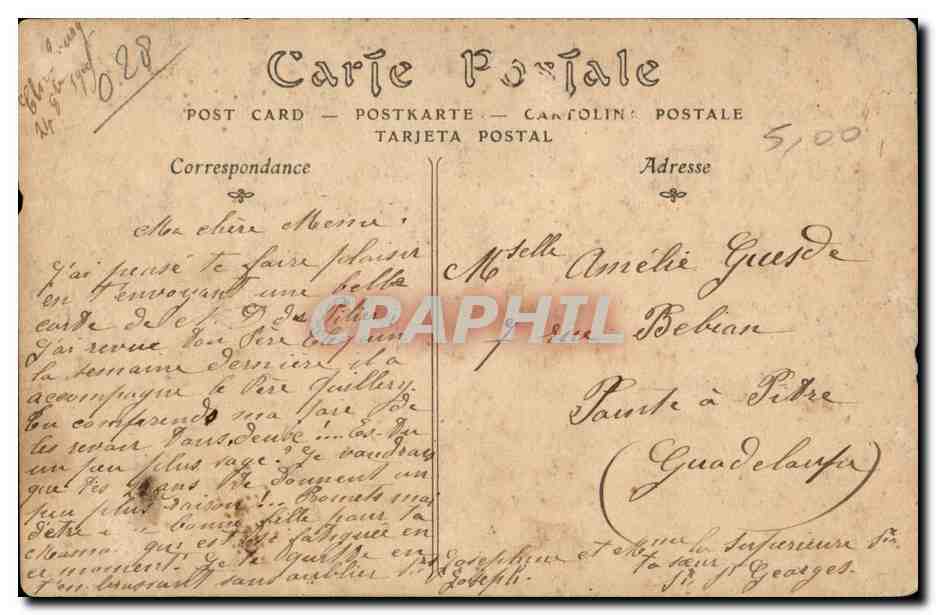 0.28
Carte Postale
POST CARD — POSTKARTE — CARTOLINA POSTALE
TARJETA POSTAL
5,00
Correspondance
Adresse
Ma chère Même :
J'ai pensé te faire plaisir
en t'envoyant une belle
carte de N. D. du Pilier
J'ai revu ton Père
la semaine dernière il a
accompagné le Père Guillery.
Tu comprends ma joie de
les revoir tous deux !... Es-tu
un peu plus sage ? Je voudrais
que tes ans te donnent un
peu plus raison !... Promets moi
d'être bonne fille pour ta
Maman qui est fatiguée en
ce moment. Je te quitte en
t'embrassant sans oublier Joséphine et
Joseph.
ta sœur
Sr St Georges.
Mselle Amélie Guesde
7 rue Bebian
Pointe à Pitre
(Guadeloupe)
CPAPHIL